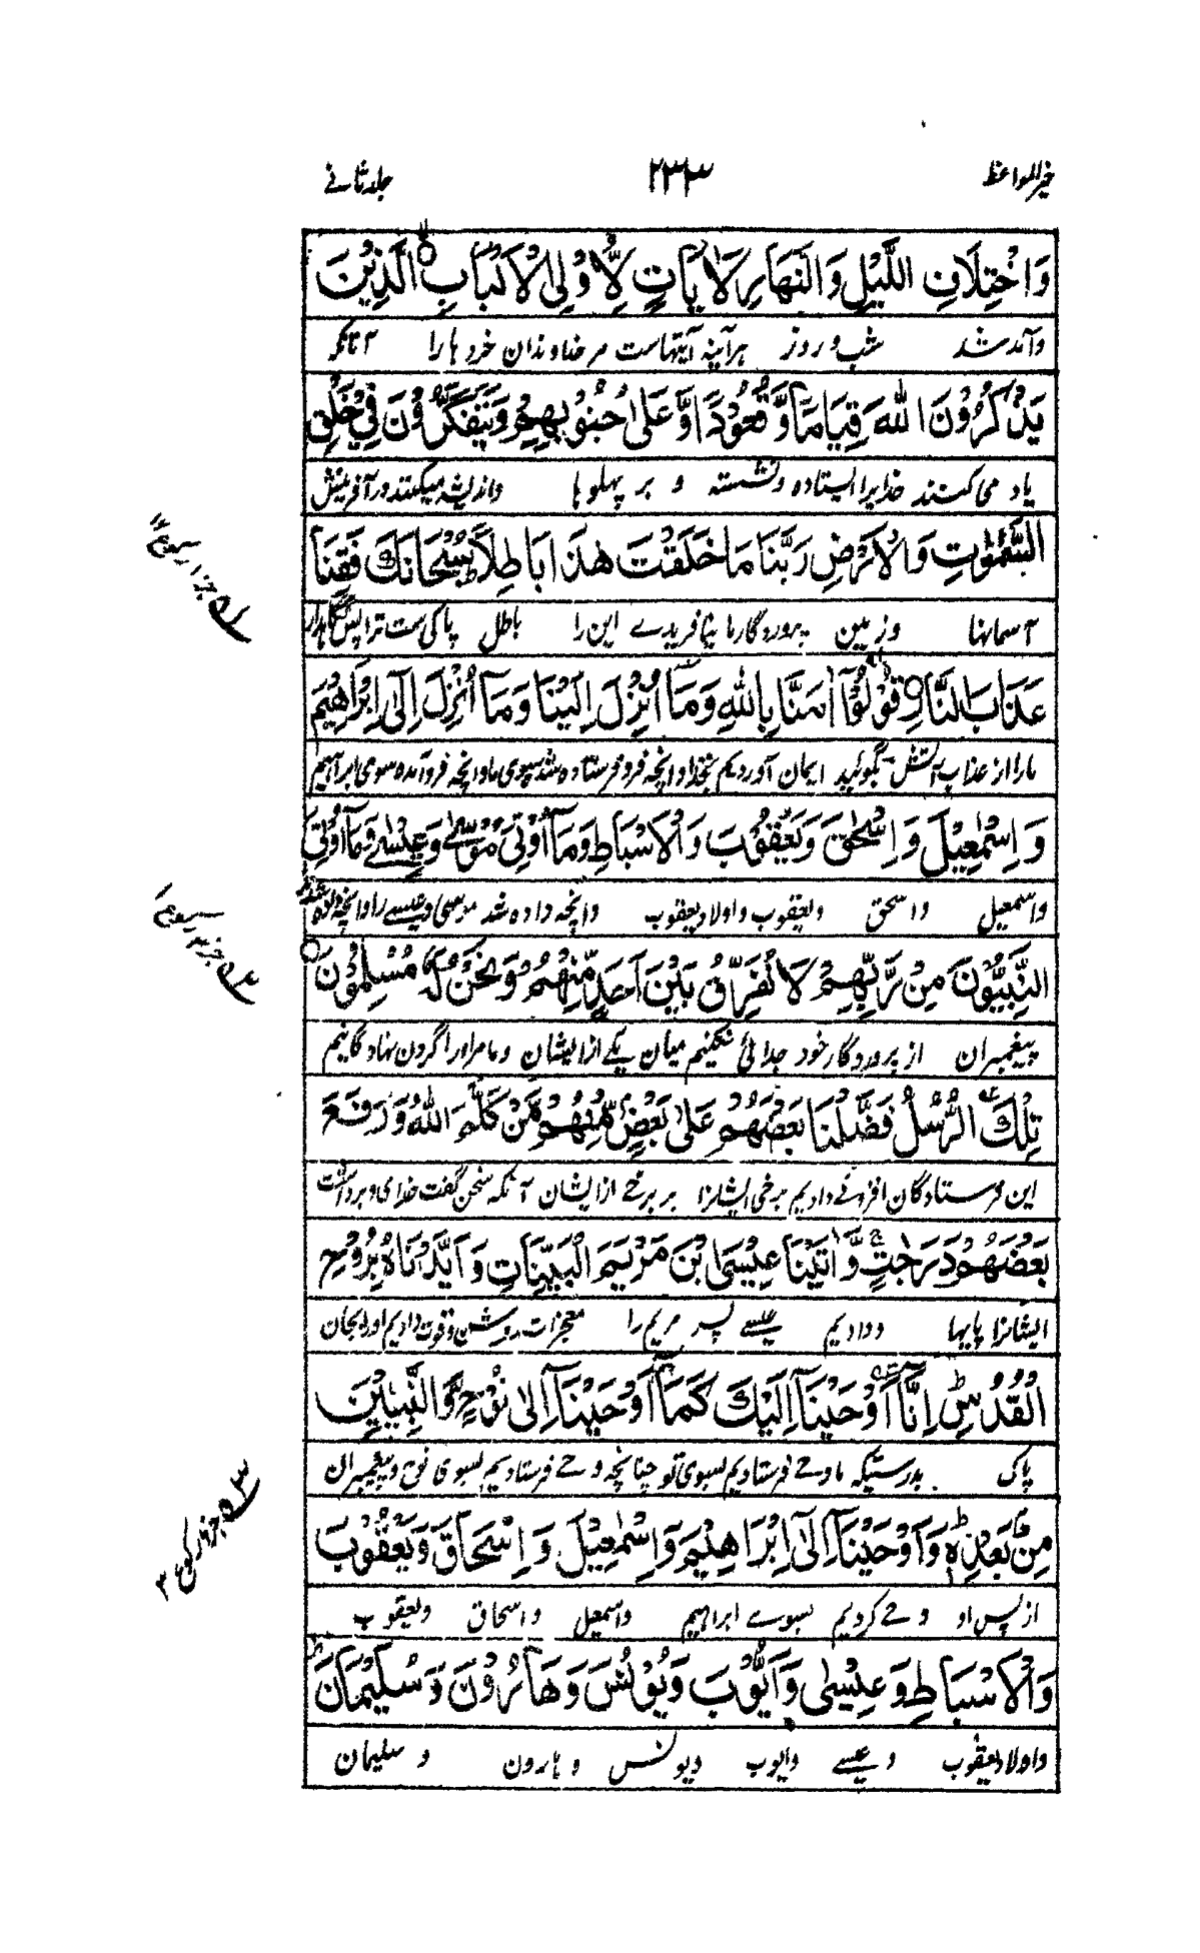 خیرالمواعظ
۲۳۳
جلد ثانے
وَاخْتِلَافِ اللَّيْلِ وَالنَّهَارِ لَاٰيَاتٍ لِّاُولِى الْاَلْبَابِ ۝ الَّذِيْنَ
وآمد شد شب و روز هرآینه آیتهاست مر خداوندان خردها را آنانکه
يَذْكُرُوْنَ اللّٰهَ قِيَامًا وَّقُعُوْدًا وَّعَلٰى جُنُوْبِهِمْ وَيَتَفَكَّرُوْنَ فِيْ خَلْقِ
یاد می کنند خدایرا ایستاده و نشسته و بر پهلوها واندیشه میکنند در آفرینش
السَّمٰوٰتِ وَالْاَرْضِ رَبَّنَا مَا خَلَقْتَ هٰذَا بَاطِلًا سُبْحَانَكَ فَقِنَا
آسمانها و زمین پروردگار ما نیافریدے این را باطل پاکی ست ترا پس نگاہدار
عَذَابَ النَّارِ ۝ قُوْلُوْٓا اٰمَنَّا بِاللّٰهِ وَمَآ اُنْزِلَ اِلَيْنَا وَمَآ اُنْزِلَ اِلٰٓى اِبْرَاهِيْمَ
مارا از عذاب آتش بگوئید ایمان آوردیم بخدا و انچه فرو فرستاده شد بسوی ما وانچه فرو آمده سوی ابراہیم
وَاِسْمٰعِيْلَ وَاِسْحٰقَ وَيَعْقُوْبَ وَالْاَسْبَاطِ وَمَآ اُوْتِيَ مُوْسٰى وَعِيْسٰى وَمَآ اُوْتِيَ
واسمعیل واسحق ویعقوب واولاد یعقوب وانچه داده شد موسی و عیسے را وانچه داده شد
النَّبِيُّوْنَ مِنْ رَّبِّهِمْ لَا نُفَرِّقُ بَيْنَ اَحَدٍ مِّنْهُمْ وَنَحْنُ لَهٗ مُسْلِمُوْنَ ۝
پیغمبران از پروردگار خود جدائی نکنیم میان یکے از ایشان و ما مر او را گردن نهادگانیم
تِلْكَ الرُّسُلُ فَضَّلْنَا بَعْضَهُمْ عَلٰى بَعْضٍ مِّنْهُمْ مَّنْ كَلَّمَ اللّٰهُ وَرَفَعَ
این فرستادگان افزونے دادیم برخی ایشانرا بر برخے از ایشان آنکه سخن گفت خدای و برداشت
بَعْضَهُمْ دَرَجٰتٍ وَّاٰتَيْنَا عِيْسَى ابْنَ مَرْيَمَ الْبَيِّنَاتِ وَاَيَّدْنَاهُ بِرُوْحِ
ایشانرا پایها و دادیم عیسے پسر مریم را معجزات روشن و قوت دادیم او را بجان
الْقُدُسِ ط اِنَّآ اَوْحَيْنَآ اِلَيْكَ كَمَآ اَوْحَيْنَآ اِلٰى نُوْحٍ وَّالنَّبِيّٖنَ
پاک بدرستیکه ما وحے فرستادیم بسوی تو چنانچه وحے فرستادیم بسوی نوح و پیغمبران
مِنْ بَعْدِهٖ ط وَاَوْحَيْنَآ اِلٰٓى اِبْرَاهِيْمَ وَاِسْمٰعِيْلَ وَاِسْحَاقَ وَيَعْقُوْبَ
از پس او و وحے کردیم بسوے ابراہیم واسمعیل و اسحاق و یعقوب
وَالْاَسْبَاطِ وَعِيْسٰى وَاَيُّوْبَ وَيُوْنُسَ وَهَارُوْنَ وَسُلَيْمَانَ
واولاد یعقوب و عیسے وایوب ویونس و ہارون و سلیمان